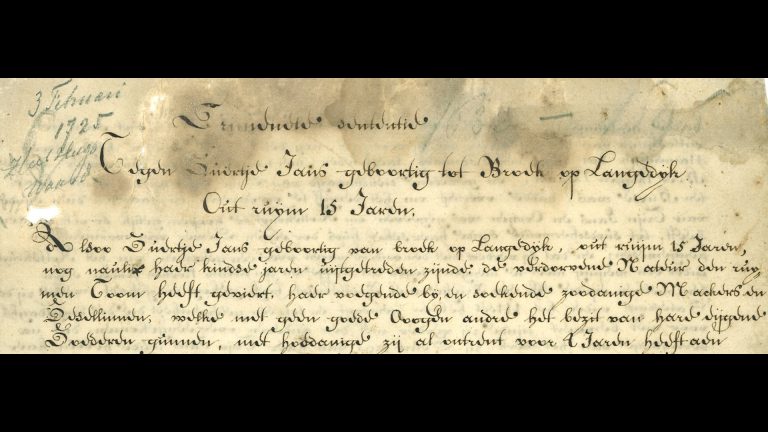 3 Februari
1725
Crimenele sententie
Tegen Guertje Jans geboortig tot Broek op Langedyk
Out ruijm 15 Jaren,
Alsoo Guertje Jans geboortig van broek op Langedyk, out ruijm 15 Jaren,
nog naulix haer kindse jaren uijtgetreden zijnde, de verdorvene Nateur den ruy,
men Toom heeft geviert, haer voegende by, en soekende zoodanige Mackers en
Gesellinnen, welke met geen goede Oogen andre het bezit van hare eijgene
Goederen gunnen, met hoedanige zij al ontrent voor 4 Jaren heeft aen